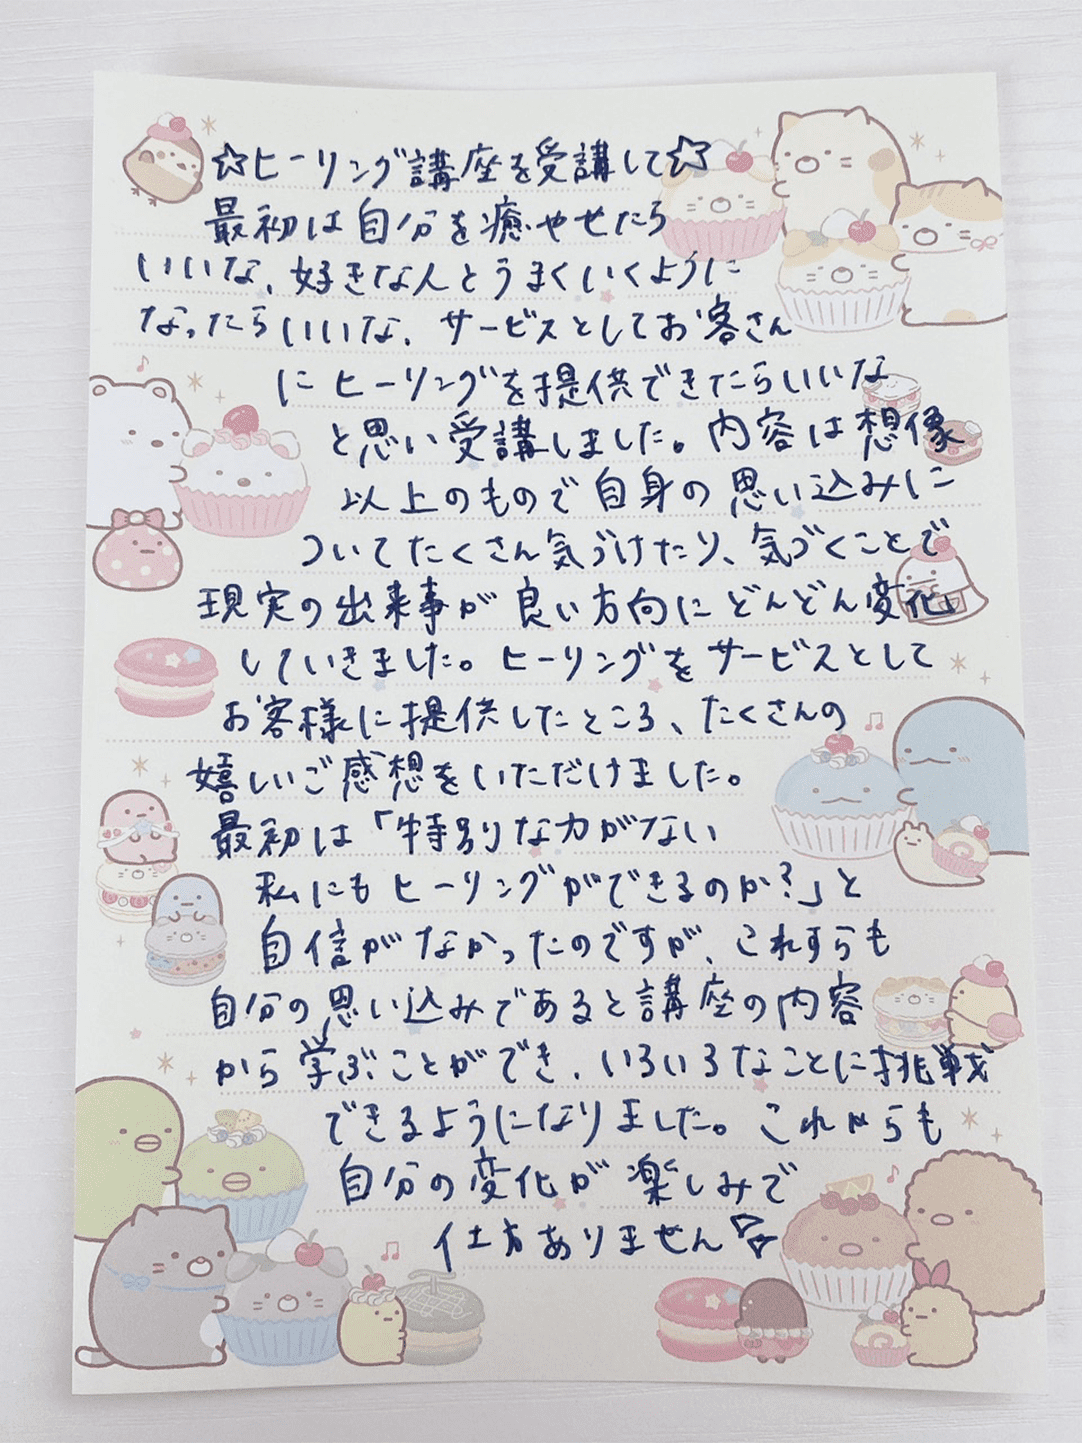 ☆ヒーリング講座を受講して☆
最初は自分を癒やせたら
いいな、好きな人とうまくいくように
なったらいいな、サービスとしてお客さん
にヒーリングを提供できたらいいな
と思い受講しました。内容は想像
以上のもので自身の思い込みに
ついてたくさん気づけたり、気づくことで
現実の出来事が良い方向にどんどん変化
していきました。ヒーリングをサービスとして
お客様に提供したところ、たくさんの
嬉しいご感想をいただけました。
最初は「特別な力がない
私にもヒーリングができるのか?」と
自信がなかったのですが、これすらも
自分の思い込みであると講座の内容
から学ぶことができ、いろいろなことに挑戦
できるようになりました。これからも
自分の変化が楽しみで
仕方ありません☆